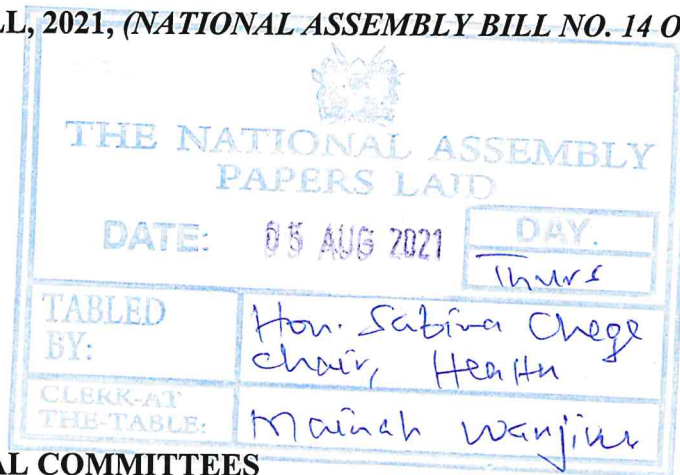 LL, 2021, (NATIONAL ASSEMBLY BILL NO. 14 O
THE NATIONAL ASSEMBLY
PAPERS LAID
DATE: 05 AUG 2021 DAY.
Thurs
TABLED BY: Hon. Sabina Chege
chair, Health
CLERK-AT THE-TABLE: Mainah Wanjiku
AL COMMITTEES